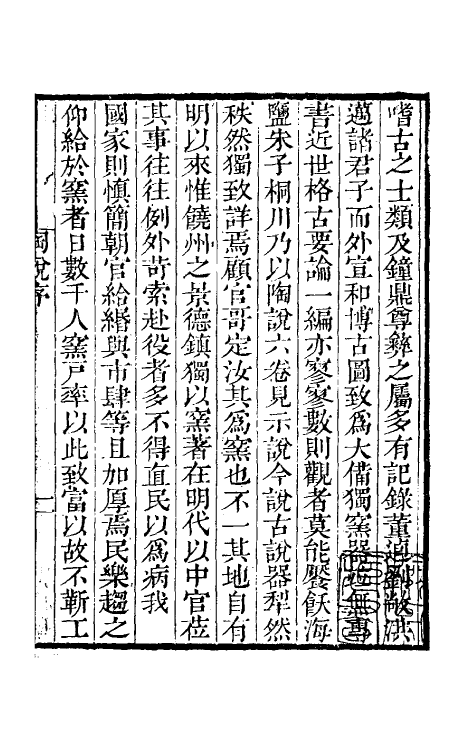 嗜古之士類及鐘鼎尊彝之屬多有記錄董逌劉敞洪
邁諸君子而外宣和博古圖致為大備獨窯器無專
書近世格古要論一編亦寥寥數則觀者莫能饜飫海
鹽朱子桐川乃以陶說六卷見示說今說古說器犁然
秩然獨致詳焉顧官哥定汝其為窯也不一其地自有
明以來惟饒州之景德鎮獨以窯著在明代以中官蒞
其事往往例外苛索赴役者多不得直民以為病我
國家則慎簡朝官給緡與市肆等且加厚焉民樂趨之
仰給於窯者日數千人窯戶率以此致富以故不靳工
陶說序
一